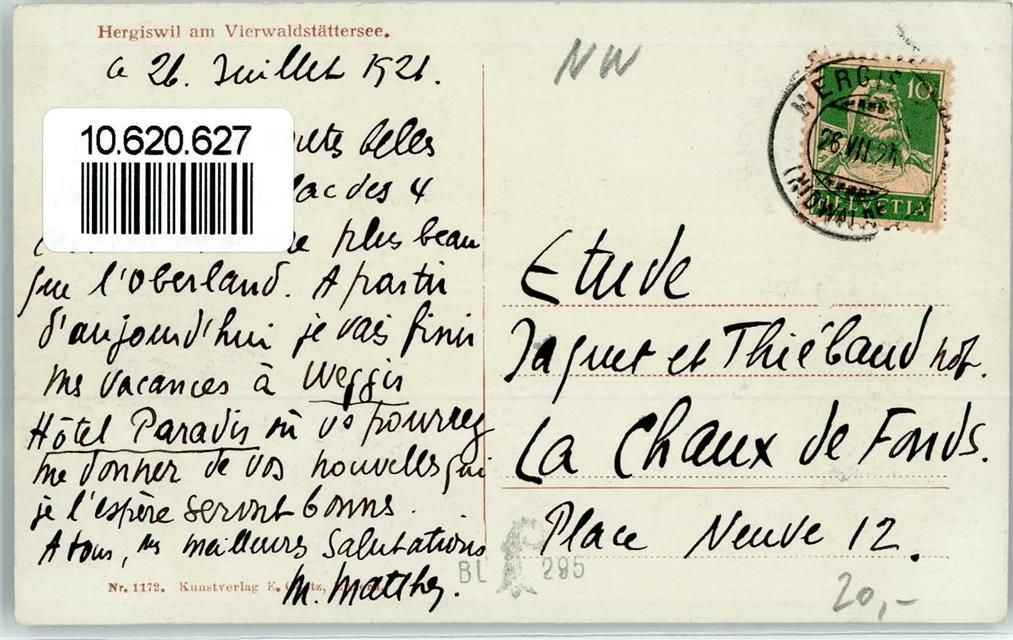 Hergiswil am Vierwaldstättersee.
26. Juillet 1921.
10.620.627
belles
lac des 4
plus beau
que l'Oberland. A partir
d'aujourd'hui je vais finir
mes vacances à Weggis
Hôtel Paradis où vs pourrez
me donner de vos nouvelles qui
je l'espère seront bonnes.
A tous, mes meilleures salutations
M. Matthey.
Nr. 1172. Kunstverlag E.
NW
10
HELVETIA
26.VII.21
Etude
Jaquet et Thiébaud not.
La Chaux de Fonds.
Place Neuve 12.
BL 295
20,-